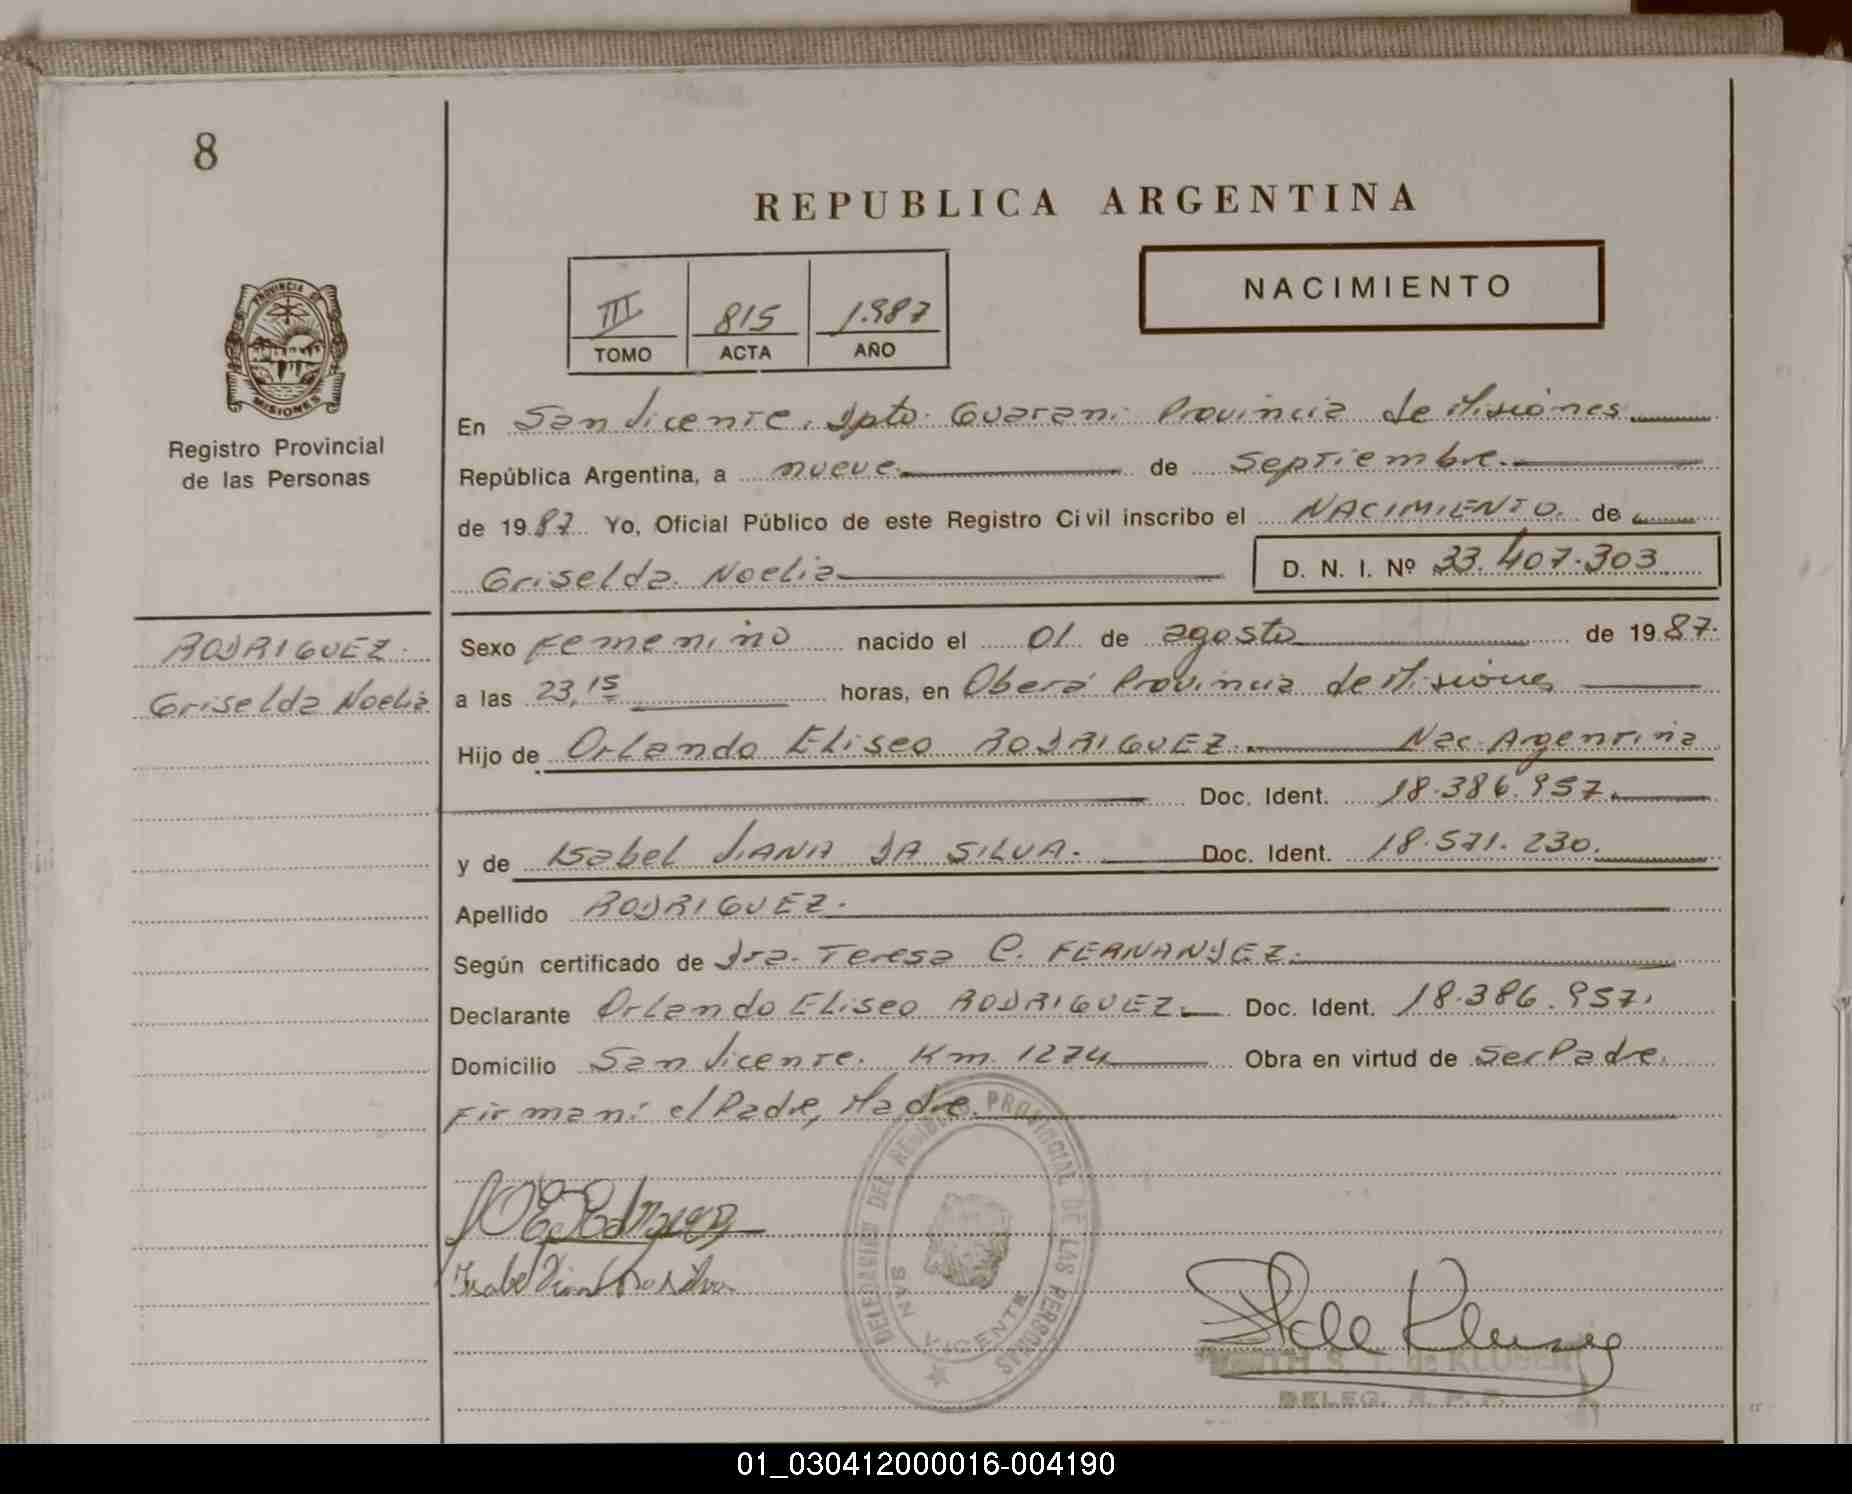 8
REPUBLICA ARGENTINA
NACIMIENTO
III 815 1.987
TOMO ACTA AÑO
PROVINCIA DE
MISIONES
Registro Provincial
de las Personas
En San Vicente, Dpto. Guarani Provincia de Misiones
República Argentina, a nueve de Septiembre.
de 1987 Yo, Oficial Público de este Registro Civil inscribo el NACIMIENTO. de
Griselda Noelia D. N. I. Nº 33.407.303
RODRIGUEZ.
Griselda Noelia
Sexo Femenino nacido el 01 de agosto de 1987.
a las 23,15 horas, en Oberá Provincia de Misiones
Hijo de Orlando Eliseo RODRIGUEZ. Nac. Argentina
Doc. Ident. 18.386.957.
y de Isabel VIANA DA SILVA. Doc. Ident. 18.571.230.
Apellido RODRIGUEZ.
Según certificado de Dra. Teresa C. FERNANDEZ.
Declarante Orlando Eliseo RODRIGUEZ. Doc. Ident. 18.386.957.
Domicilio San Vicente. Km. 1274 Obra en virtud de Ser Padre.
Firman: el Padre, Madre.
DELEGACION DEL REGISTRO PROVINCIAL DE LAS PERSONAS
SAN VICENTE
Isabel Viana Da Silva
DELEG. R. P. P.
01_030412000016-004190